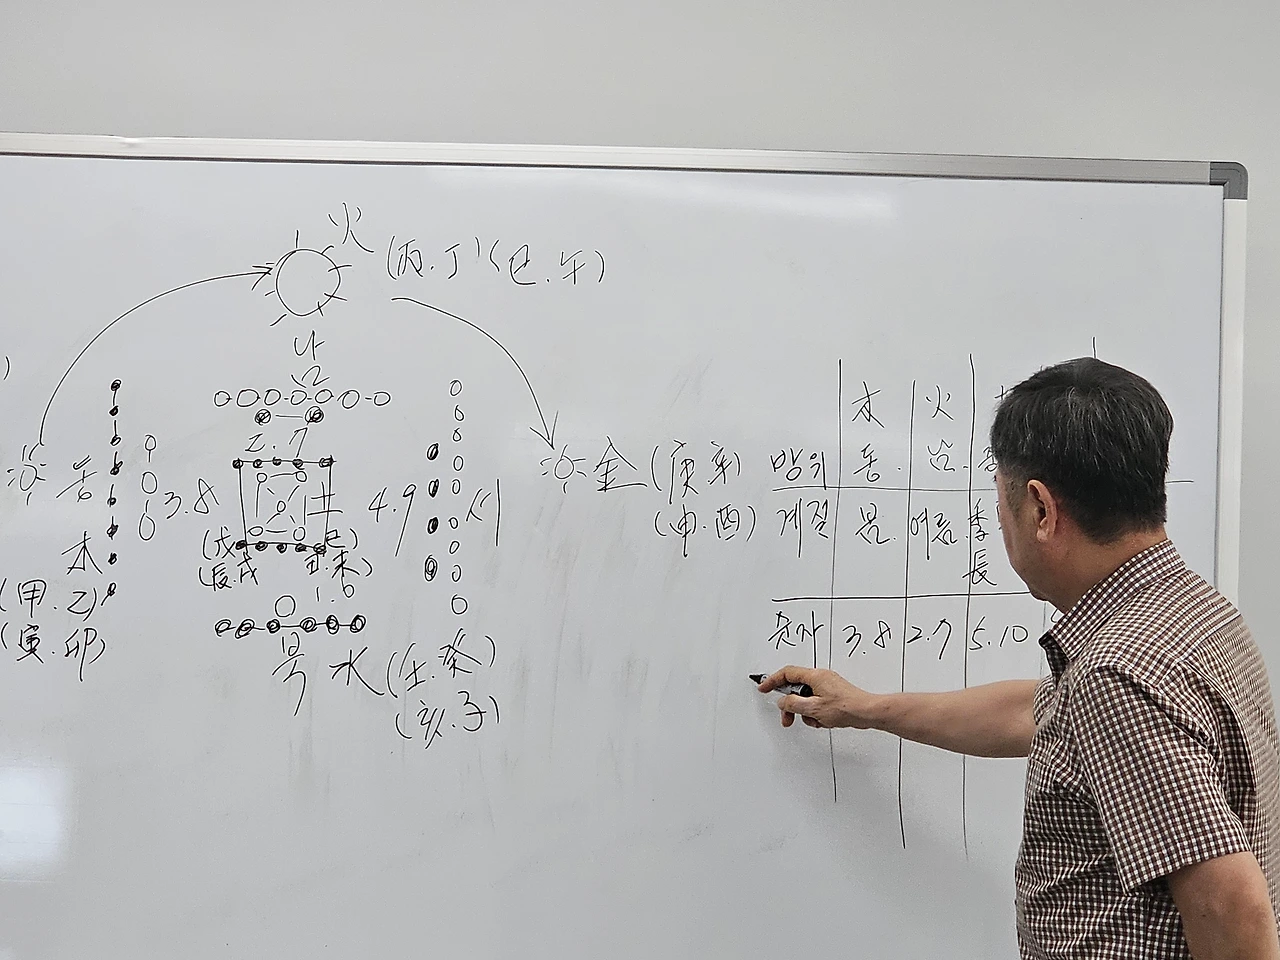 火
(丙.丁)(巳.午)
남
2.7
동 3.8 土 4.9 서
木
(甲.乙)
(寅.卯)
(戊.己)
(辰.戌 丑.未)
1.6
북 水 (壬.癸)
(亥.子)
金 (庚.辛)
(申.酉)
木 火
방위 동. 남.
계절 봄. 여름. 季長
숫자 3.8 2.7 5.10